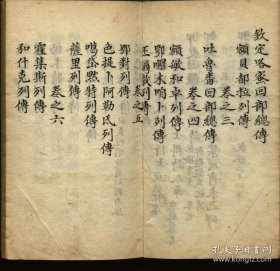 欽定哈蜜回部總傳
額貝都拉列傳
卷之三
吐魯番回部總傳
卷之四
額敏和卓列傳
鄂囉木咱卜列傳
卷之五
鄂對列傳
色提卜阿勒氐列傳
噶岱默特列傳
薩里列傳
卷之六
霍集斯列傳
和什克列傳
孔夫子旧书网